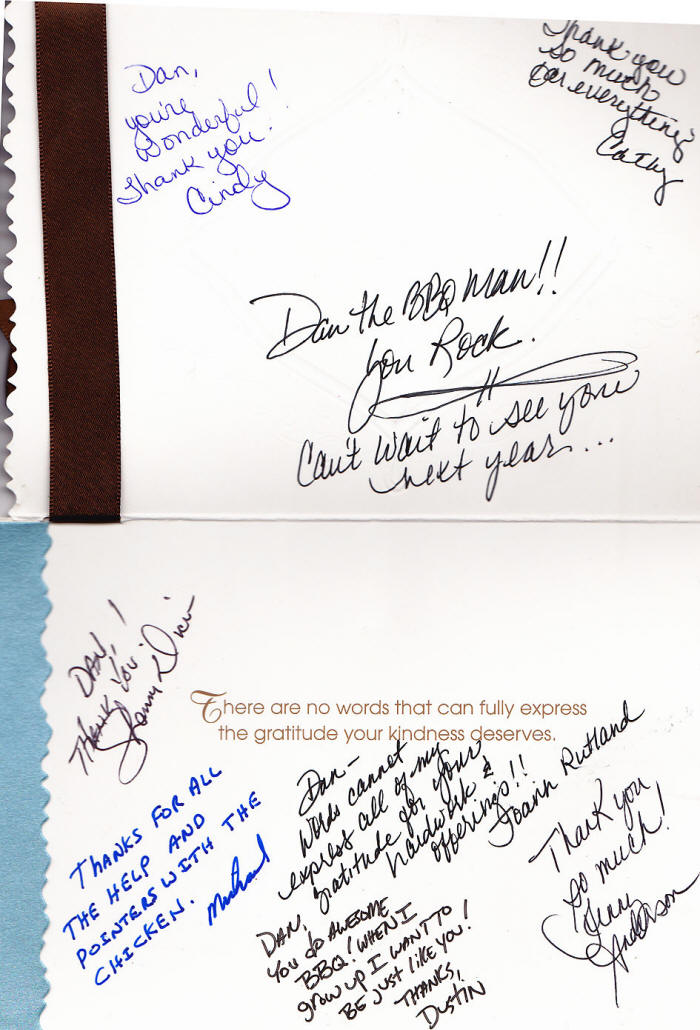 Dan,
you're
Wonderful!
Thank you.
Cindy
Thank you
so much
for everything
Cathy
Dan the BBQ Man!!
You Rock.
Can't Wait to see you
next year...
DAN,!
THANK YOU.
There are no words that can fully express
the gratitude your kindness deserves.
Dan-
Words cannot
express all of my
gratitude for your
hardwork &
offerings!!
Joann Rutland
THANKS FOR ALL
THE HELP AND
POINTERS WITH THE
CHICKEN. Michael
Thank you
so much!
Jenny
Anderson
DAN,
YOU DO AWESOME
BBQ! WHEN I
grow UP I WANT TO
BE JUST LIKE YOU!
THANKS,
DUSTIN